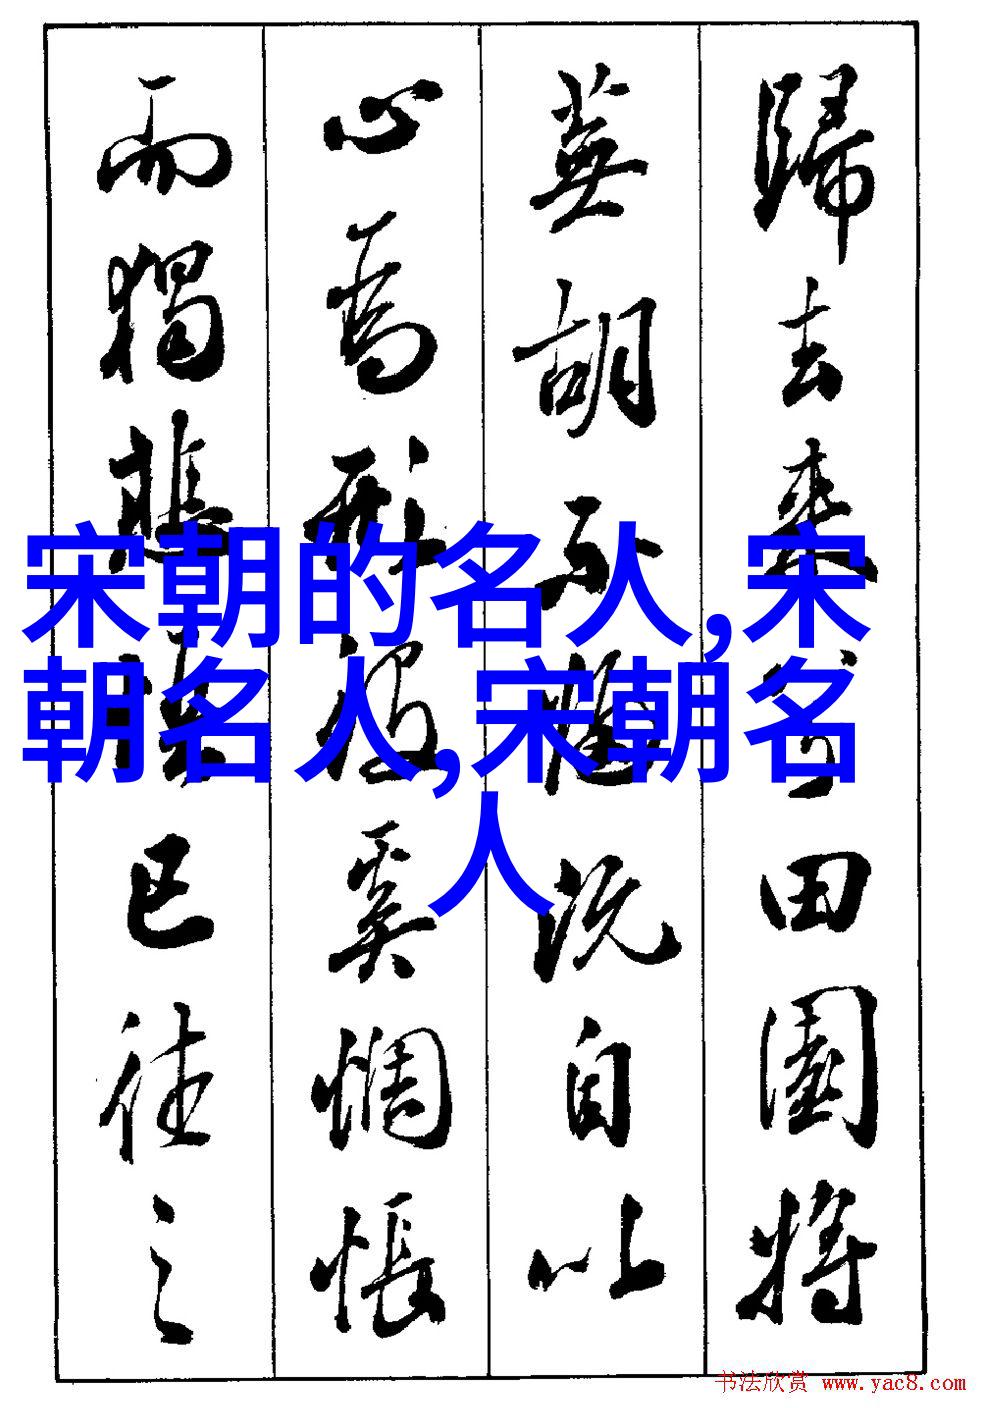 歸去來兮田園將
蕪胡不歸既自以
心為形役奚惆悵
而獨悲悟已往之
宋朝的名人,宋
朝名人,宋朝名
人
书法欣赏 www.yac8.com